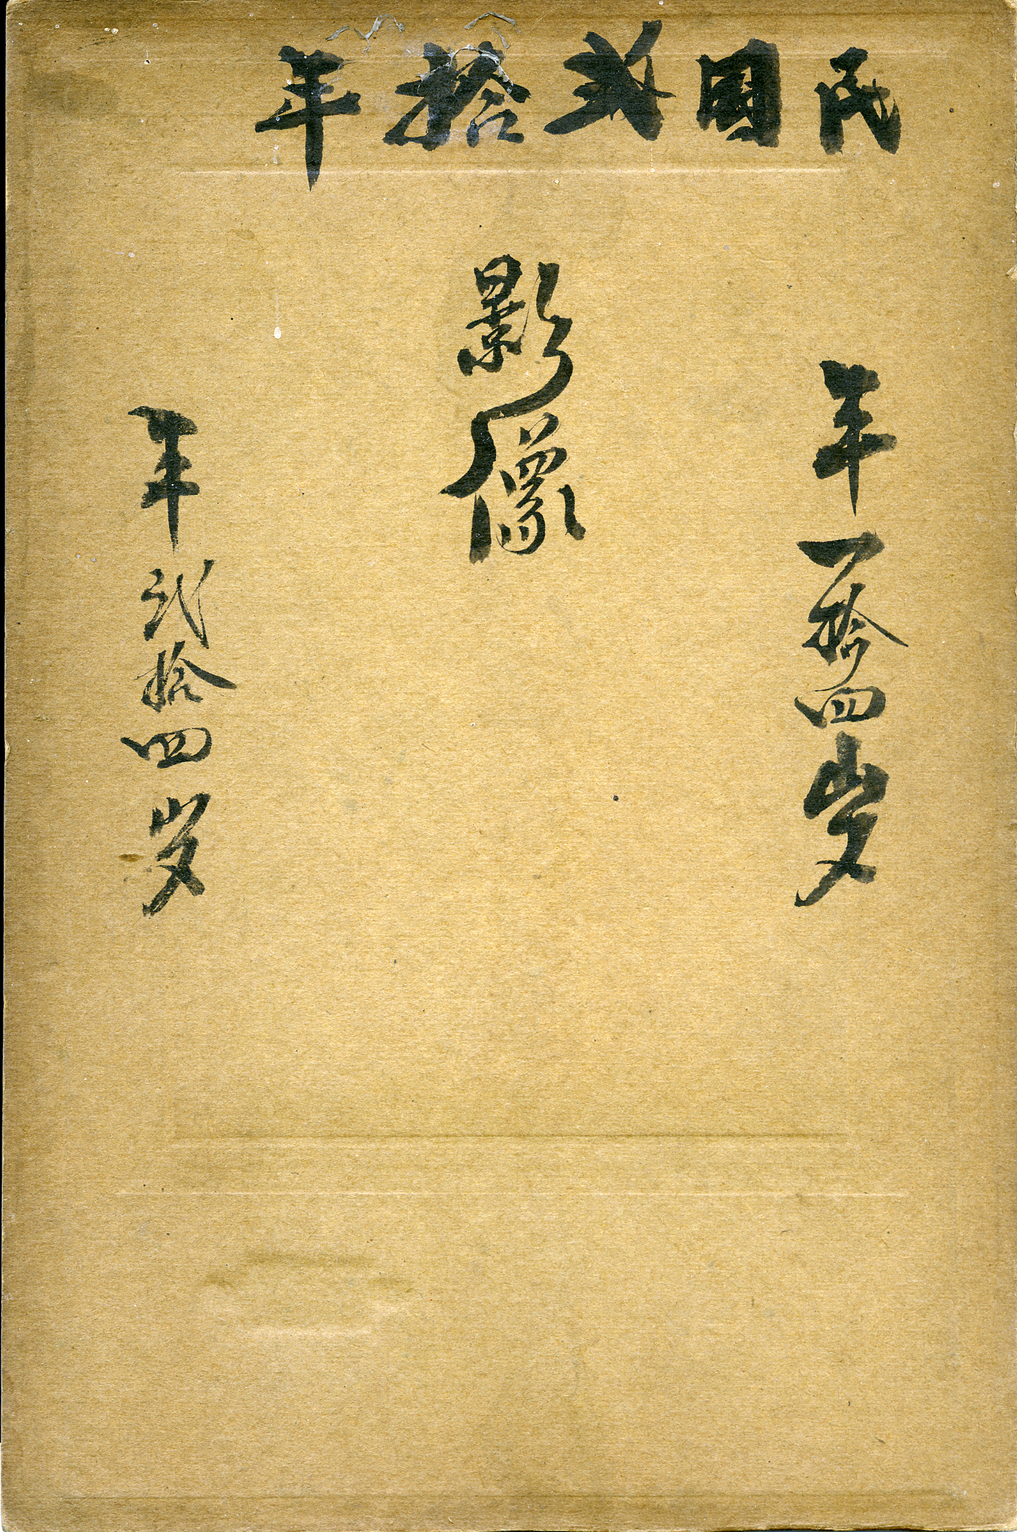 民國貳拾年
年一拾四岁
影像
年贰拾四岁